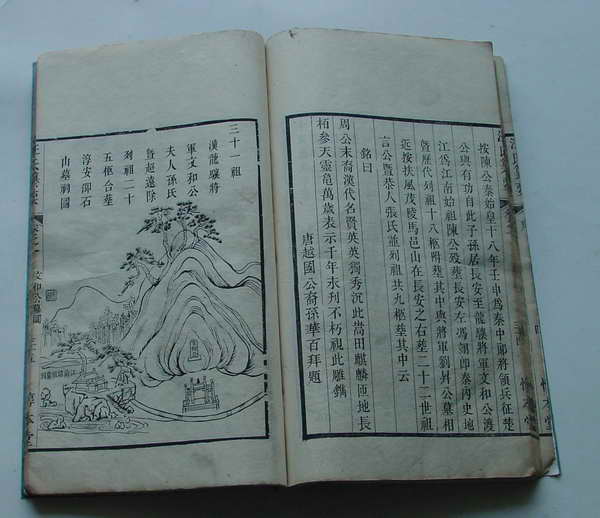 按陳公秦始皇十八年壬申爲秦中郎將領兵征楚
公與有功自此子孫居長安至龍驤將軍文和公渡
江爲江南始祖陳公殁葬長安左馮翊即秦內史地
曁歷代列祖十八柩附塟其中與將軍劉舛公墓相
近按扶風茂陵馬邑山在長安之右塟二十二世祖
言公曁恭人張氏歷列祖共九柩塟其中云
銘曰
周公末裔漢代名賢英英獨秀沉此嵩田麒麟匝地長
栢參天靈龜萬歲表示千年永列不朽視此雕鐫
唐越國公裔孫華百拜題
三十一祖
漢龍驤將
軍文和公
夫人孫氏
曁超遠除
列祖二十
五柩合塟
淳安卽石
山墓祠圖
文和公墓圖